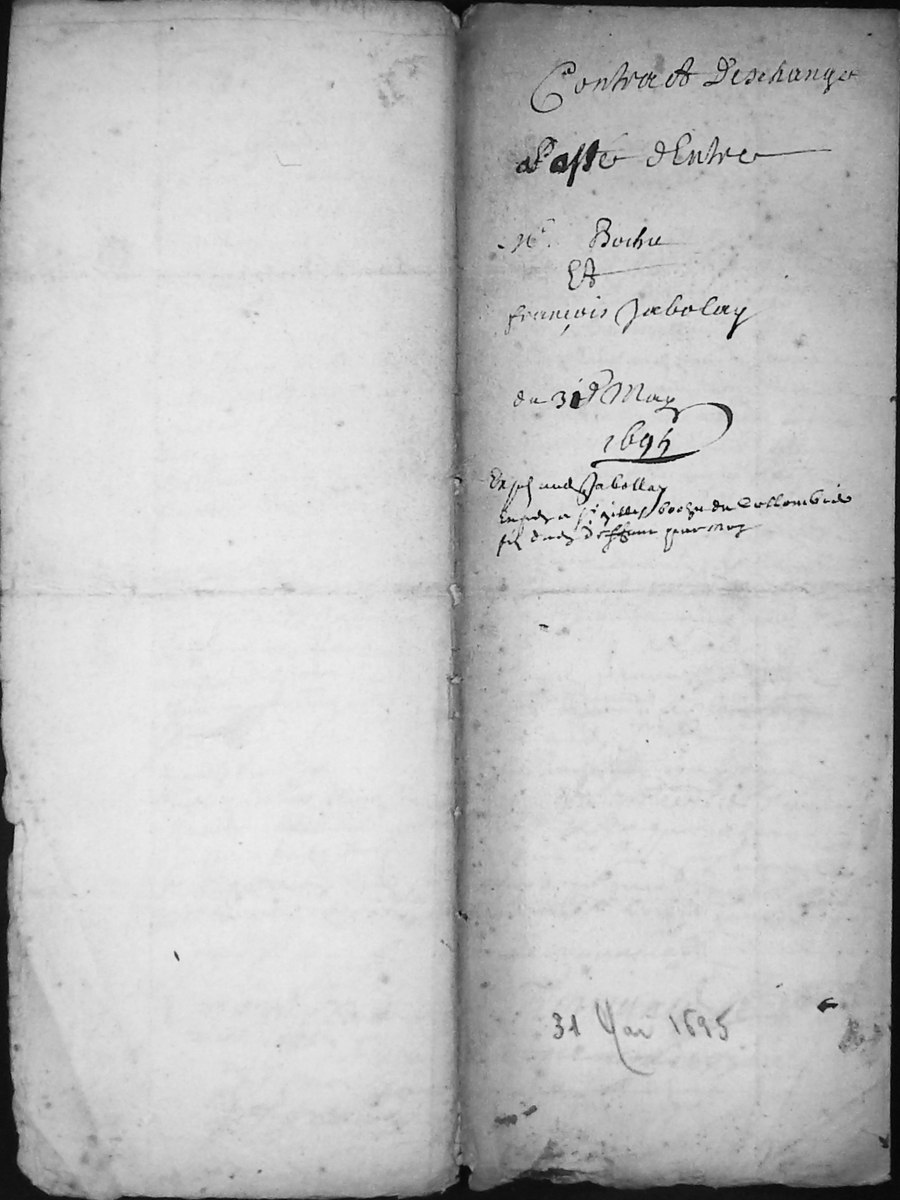 Contract Deschange
Passé dEntre
Mr Bochu
Et
françois Jabolay
du 31e May
1695
Jabollay
du Collombié
par moy
31 Mai 1695